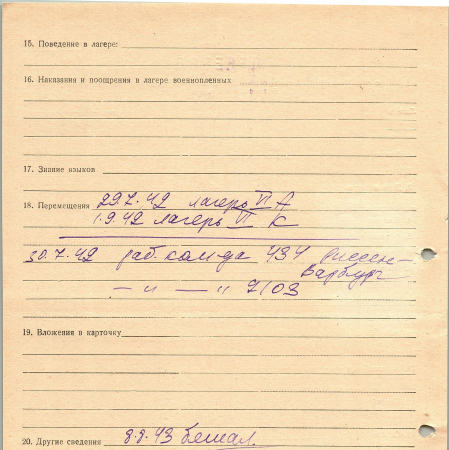 15. Поведение в лагере:
16. Наказания и поощрения в лагере военнопленных
17. Знание языков
18. Перемещения 29.7.42 лагерь VI А
1.9.42 лагерь VI К
30.7.42 раб. кол-да 434
Варбург
— „ — „ 7103
19. Вложения в карточку
20. Другие сведения 8.8.43 бежал.